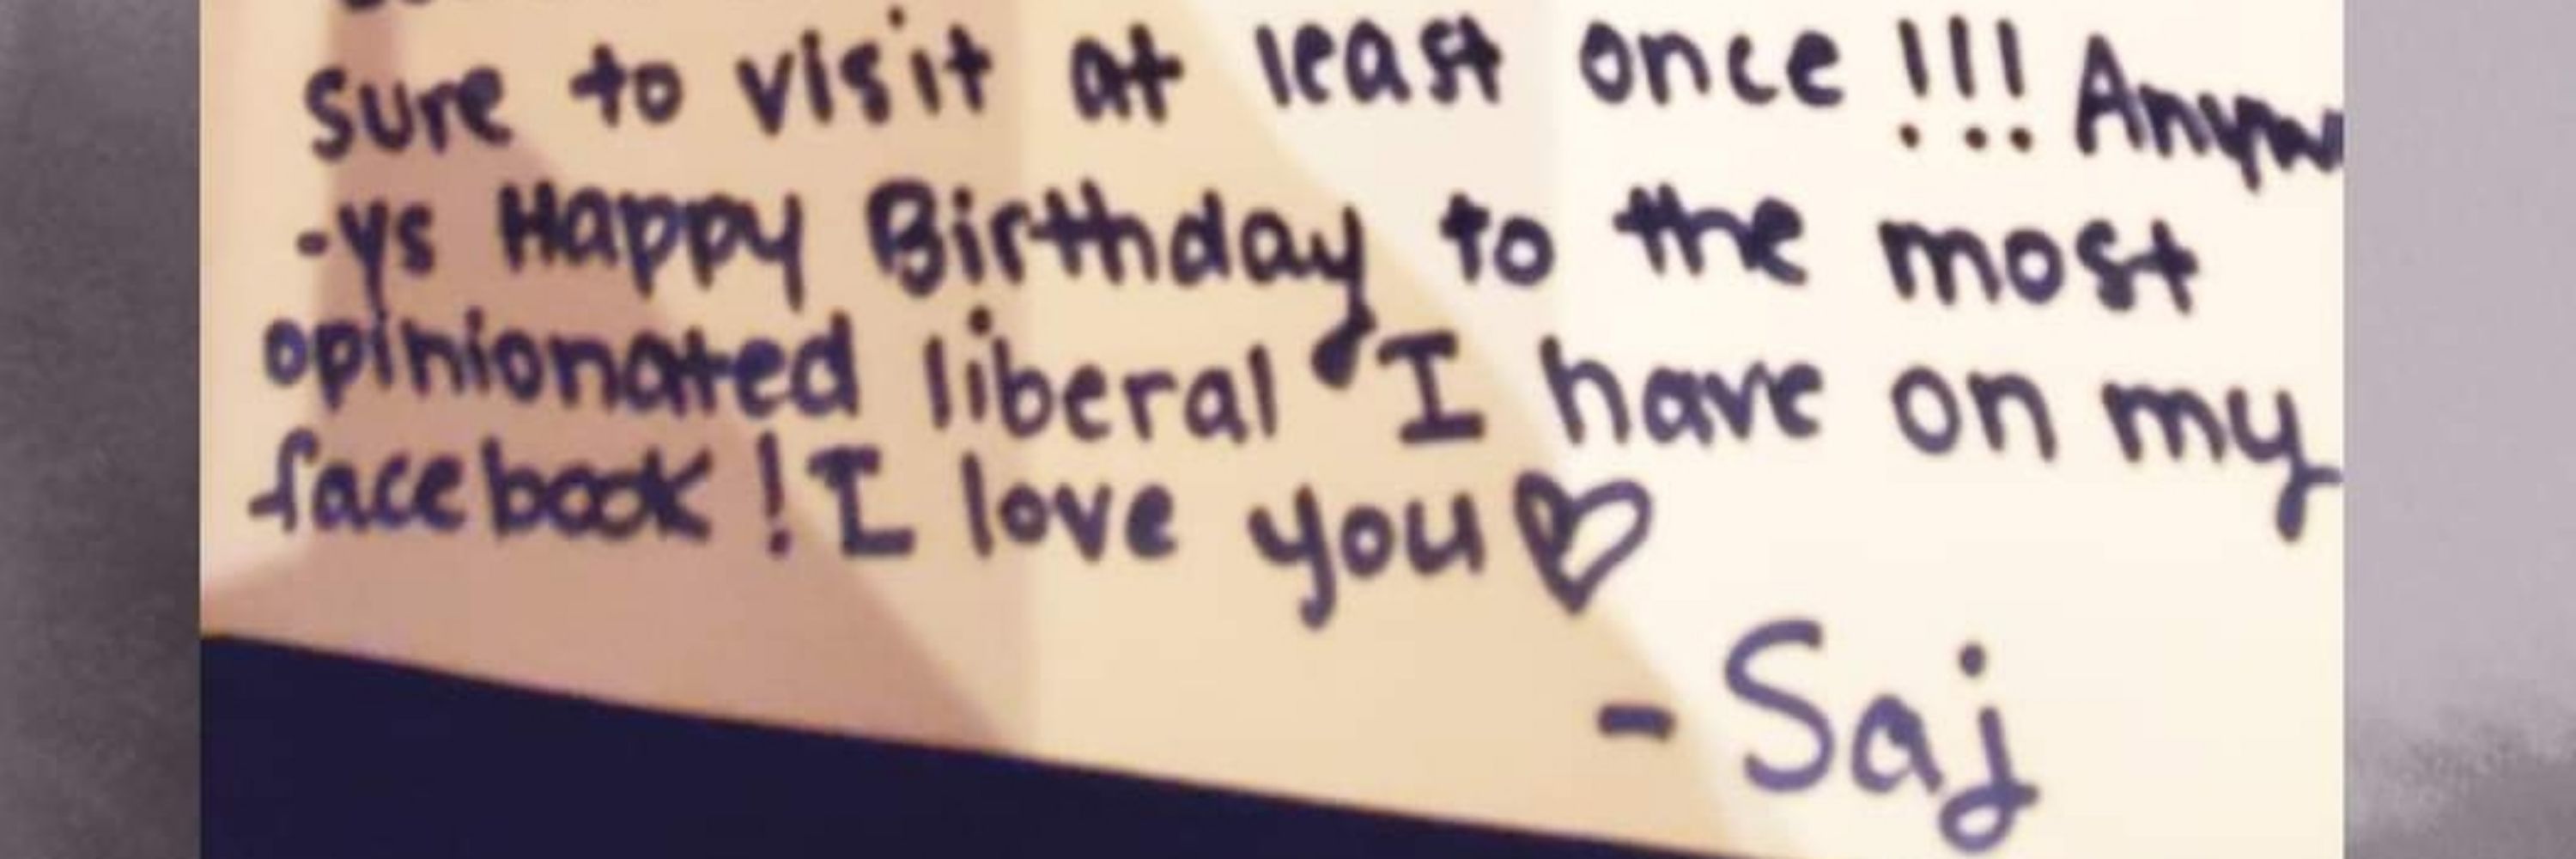 sure to visit at least once !!! Anyw
-ys Happy Birthday to the most
opinionated liberal I have on my
facebook! I love you ♡
- Saj